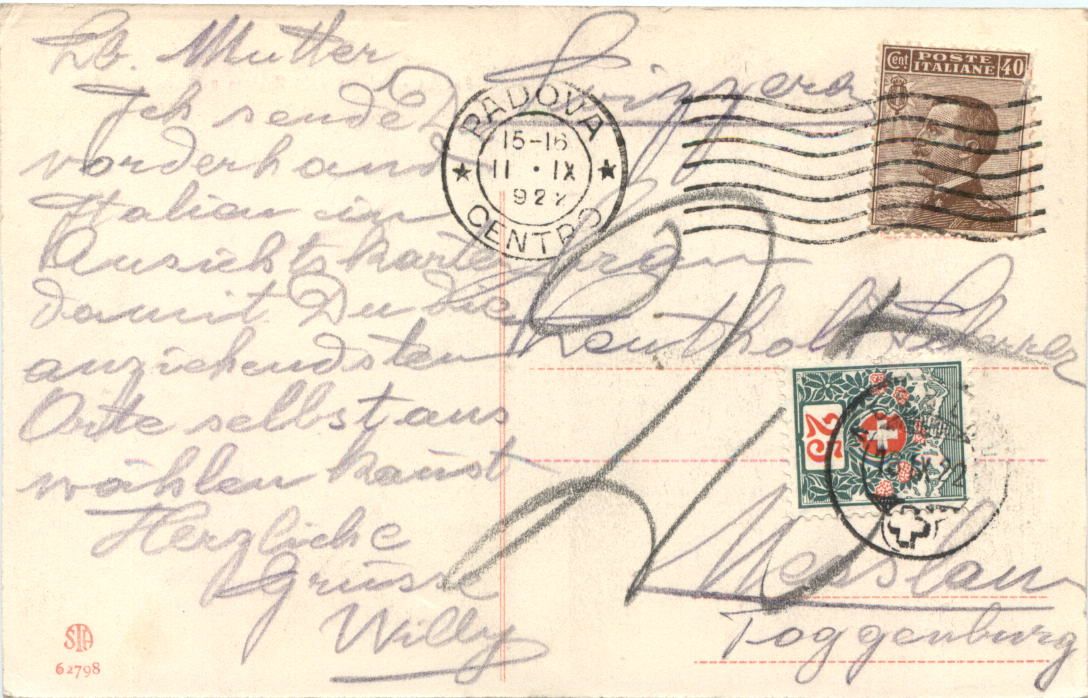 Lb. Mutter
Ich sende Dir
vorderhand
Italien in
Ansichtskarten
damit Du die
anziehendsten
Orte selbst aus
wählen kannst
Herzliche
Grüsse
Willy
SIA
62798
PADOVA
15-16
11 · IX
922
CENTRO
Cent POSTE ITALIANE 40
Svizzera
Frau
Leuthold-Scherrer
25
IX 22
Nesslau
Toggenburg